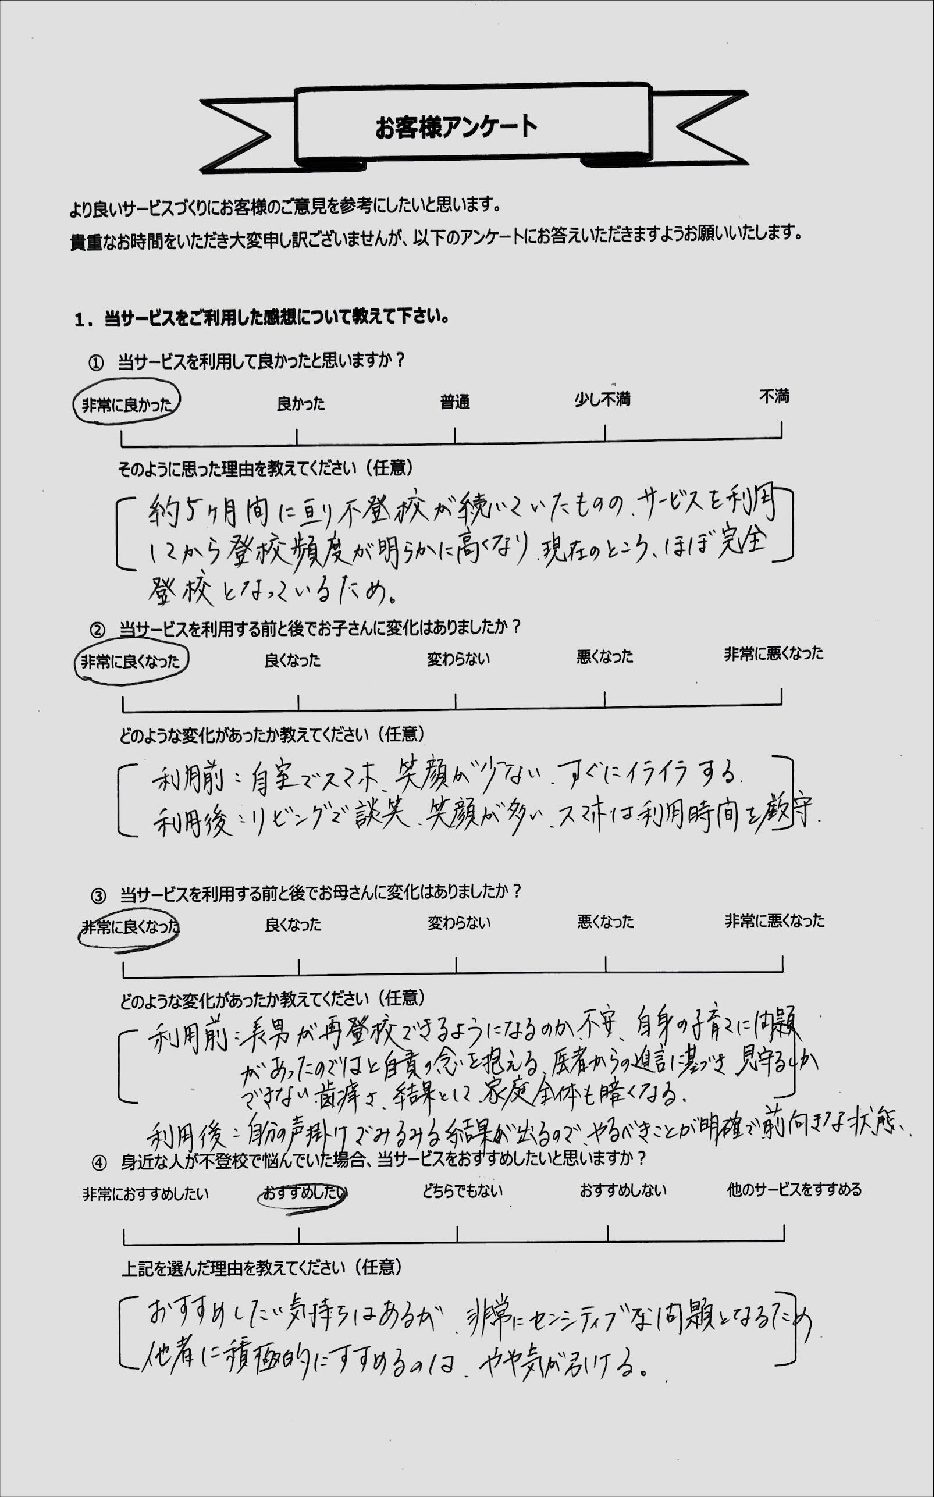 お客様アンケート
より良いサービスづくりにお客様のご意見を参考にしたいと思います。
貴重なお時間をいただき大変申し訳ございませんが、以下のアンケートにお答えいただきますようお願いいたします。
1．当サービスをご利用した感想について教えて下さい。
① 当サービスを利用して良かったと思いますか？
非常に良かった 良かった 普通 少し不満 不満
そのように思った理由を教えてください（任意）
約5ヶ月間に亘り不登校が続いていたものの、サービスを利用
してから登校頻度が明らかに高くなり、現在のところ、ほぼ完全
登校となっているため。
② 当サービスを利用する前と後でお子さんに変化はありましたか？
非常に良くなった 良くなった 変わらない 悪くなった 非常に悪くなった
どのような変化があったか教えてください（任意）
利用前：自室でスマホ、笑顔が少ない、すぐにイライラする
利用後：リビングで談笑、笑顔が多い、スマホは利用時間を厳守.
③ 当サービスを利用する前と後でお母さんに変化はありましたか？
非常に良くなった 良くなった 変わらない 悪くなった 非常に悪くなった
どのような変化があったか教えてください（任意）
利用前：長男が再登校できるようになるのか不安、自身の子育てに問題
があったのではと自責の念を抱える、医者からの助言に基づき見守るしか
できない歯痒さ、結果として家庭全体も暗くなる.
利用後：自分の声掛けでみるみる結果が出るので、やるべきことが明確で前向きな状態.
④ 身近な人が不登校で悩んでいた場合、当サービスをおすすめしたいと思いますか？
非常におすすめしたい おすすめしたい どちらでもない おすすめしない 他のサービスをすすめる
上記を選んだ理由を教えてください（任意）
おすすめしたい気持ちはあるが、非常にセンシティブな問題となるため
他者に積極的にすすめるのは、やや気が引ける。